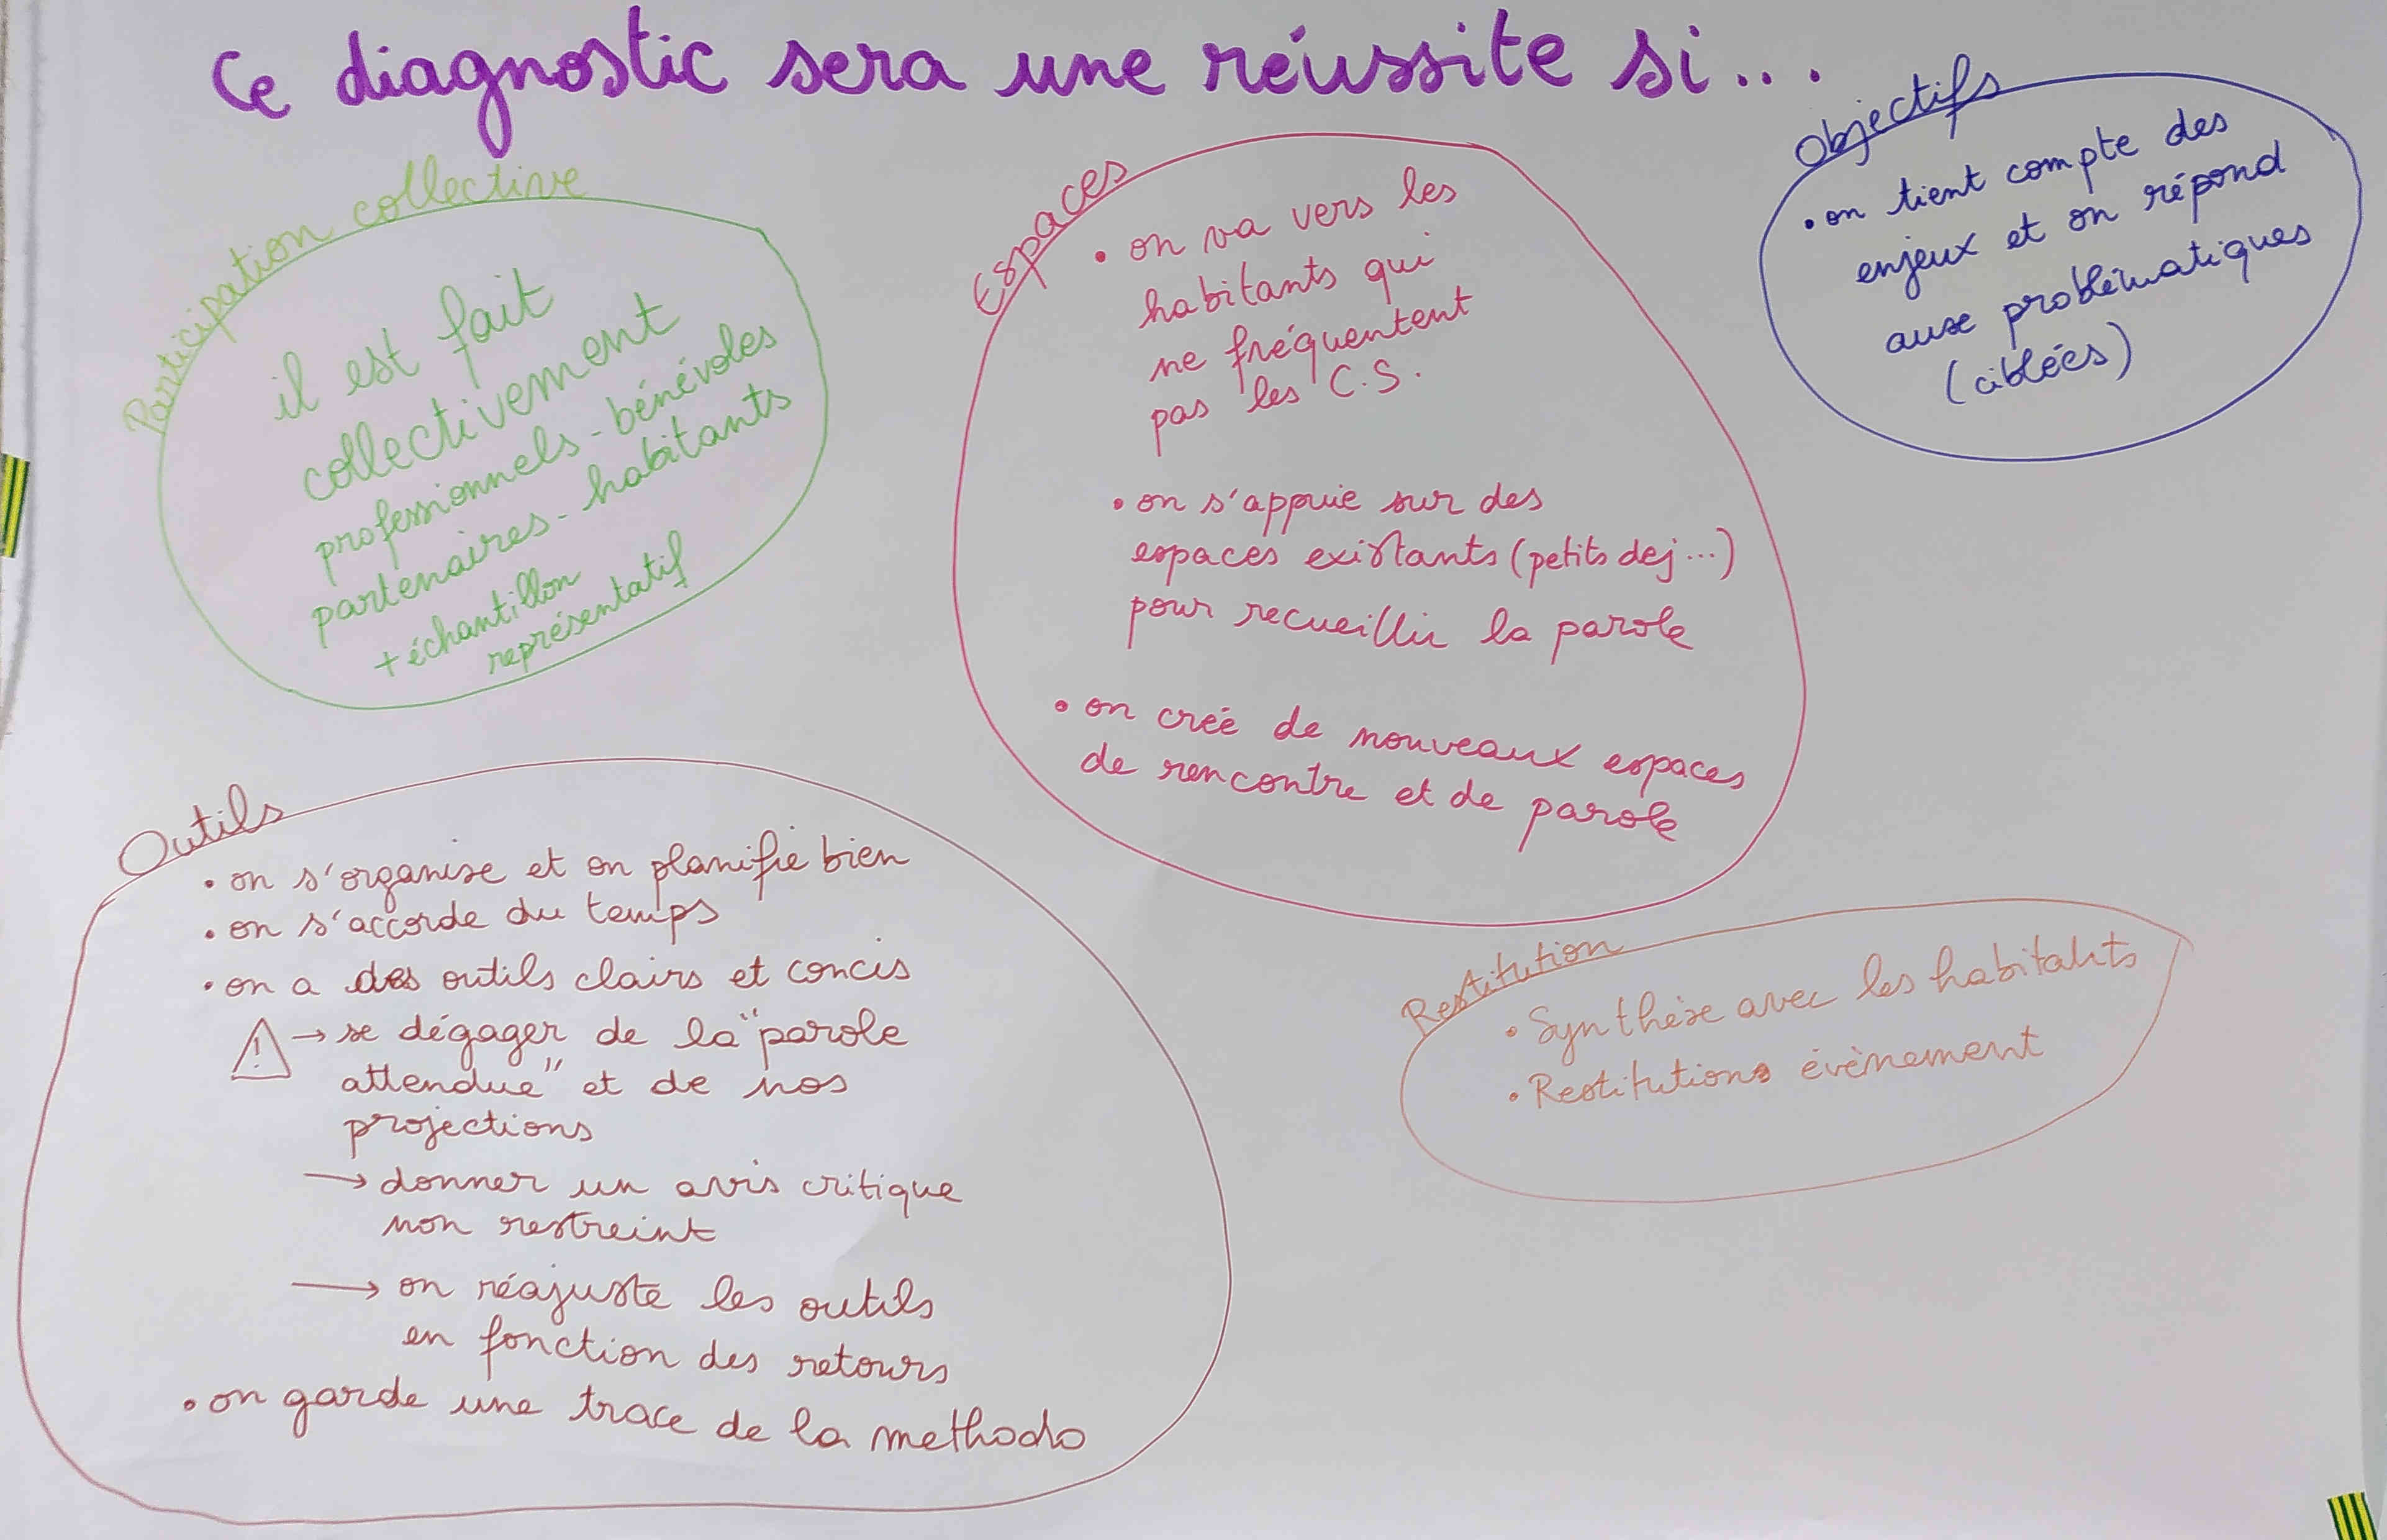 Ce diagnostic sera une réussite si...
Participation collective
il est fait
collectivement
professionnels - bénévoles
partenaires - habitants
+ échantillon
représentatif
Espaces
• on va vers les
habitants qui
ne fréquentent
pas les C.S.
• on s'appuie sur des
espaces existants (petits dej...)
pour recueillir la parole
• on créé de nouveaux espaces
de rencontre et de parole
Objectifs
• on tient compte des
enjeux et on répond
aux problématiques
(ciblées)
Outils
• on s'organise et on planifie bien
• on s'accorde du temps
• on a des outils clairs et concis
! → se dégager de la "parole
attendue" et de nos
projections
→ donner un avis critique
non restreint
→ on réajuste les outils
en fonction des retours
• on garde une trace de la methodo
Restitution
• Synthèse avec les habitants
• Restitutions évènement